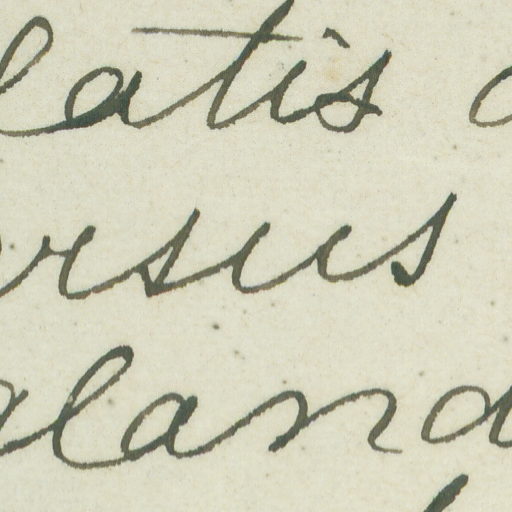 latis
ersus
aland